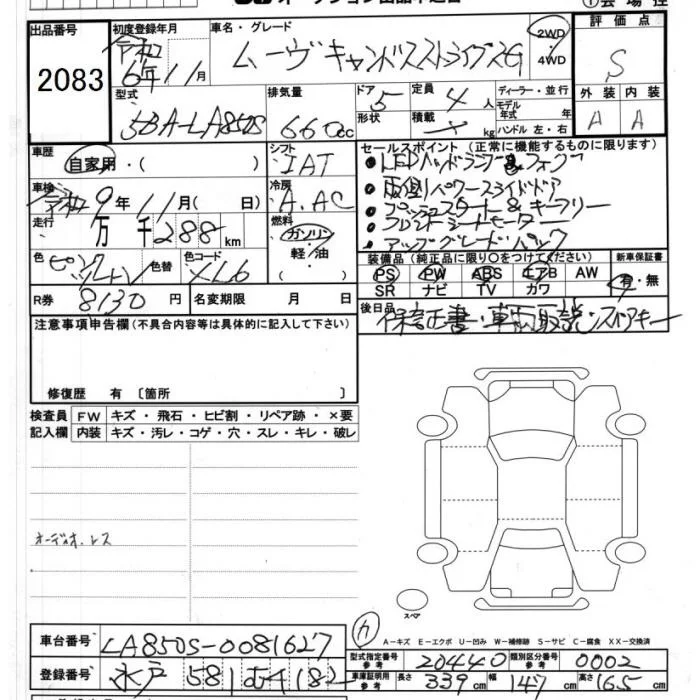 出品番号
2083
初度登録年月
令和
6年11月
車名・グレード
ムーヴキャンバスストライプスG
2WD
4WD
評価点
S
外装 内装
A A
型式
5BA-LA850S
排気量
660cc
ドア 5
形状
定員 4人
積載 kg
ディーラー・並行
モデル年式 年
ハンドル 左・右
車歴
自家用・( )
シフト
IAT
セールスポイント (正常に機能するものに限ります)
LEDヘッドランプ&フォグ
両側パワースライドドア
プッシュスタート&キーフリー
フロントシートヒーター
アップグレードパック
車検
令和9年11月( 日)
冷房
A.AC
走行
万千288km
燃料
ガソリン
軽/油
( )
色
色替
色コード
XL6
装備品(純正品に限り○をつけてください)
PS PW ABS エアB AW
SR ナビ TV カワ
新車保証書
有・無
R券 8130円
名変期限 月 日
後日品
保証書・車両取説・スペアキー
注意事項申告欄(不具合内容等は具体的に記入して下さい)
修復歴 有〔箇所 〕
検査員
記入欄
FW キズ・飛石・ヒビ割・リペア跡・×要
内装 キズ・汚レ・コゲ・穴・スレ・キレ・破レ
オーディオレス
スペア
カ
A-キズ E-エクボ U-凹み W-補修跡 S-サビ C-腐食 XX-交換済
車台番号 LA850S-0081627
型式指定番号
参考
20440
類別区分番号
参考
0002
登録番号 水戸 581
車庫証明用
参考
長さ 339cm 幅 147cm 高さ 165cm